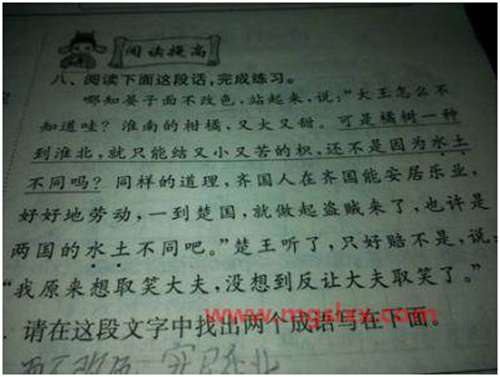 阅读提高
八、阅读下面这段话，完成练习。
哪知晏子面不改色，站起来，说：“大王怎么不
知道哇？淮南的柑橘，又大又甜。可是橘树一种
到淮北，就只能结又小又苦的枳，还不是因为水土
不同吗？同样的道理，齐国人在齐国能安居乐业，
好好地劳动，一到楚国，就做起盗贼来了，也许是
两国的水土不同吧。”楚王听了，只好赔不是，说：
“我原来想取笑大夫，没想到反让大夫取笑了。”
www.mgslxx.com
请在这段文字中找出两个成语写在下面。
面不改色 安居乐业